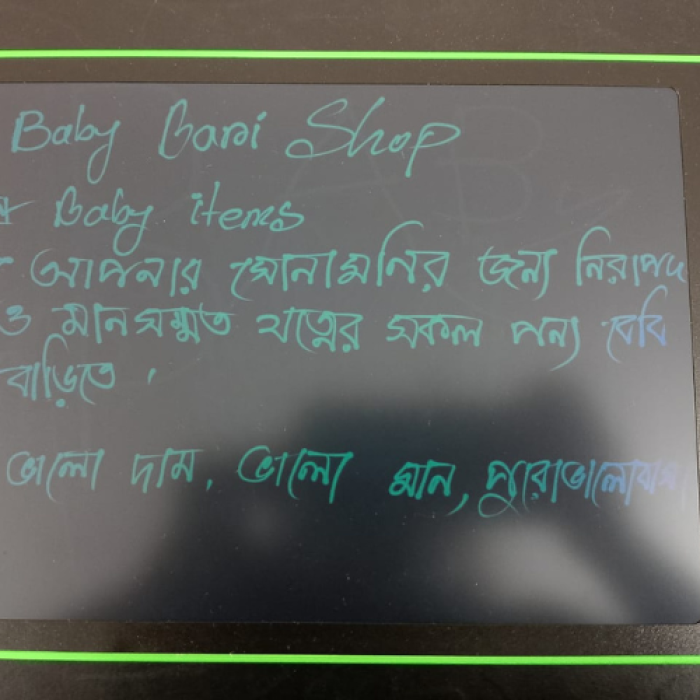 Baby Bari Shop
* Baby items
আপনার সোনামনির জন্য নিরাপদ
ও মানসম্মত যত্নের সকল পন্য বেবি
বাড়িতে ।
ভালো দাম, ভালো মান, পুরোভালোবাসা